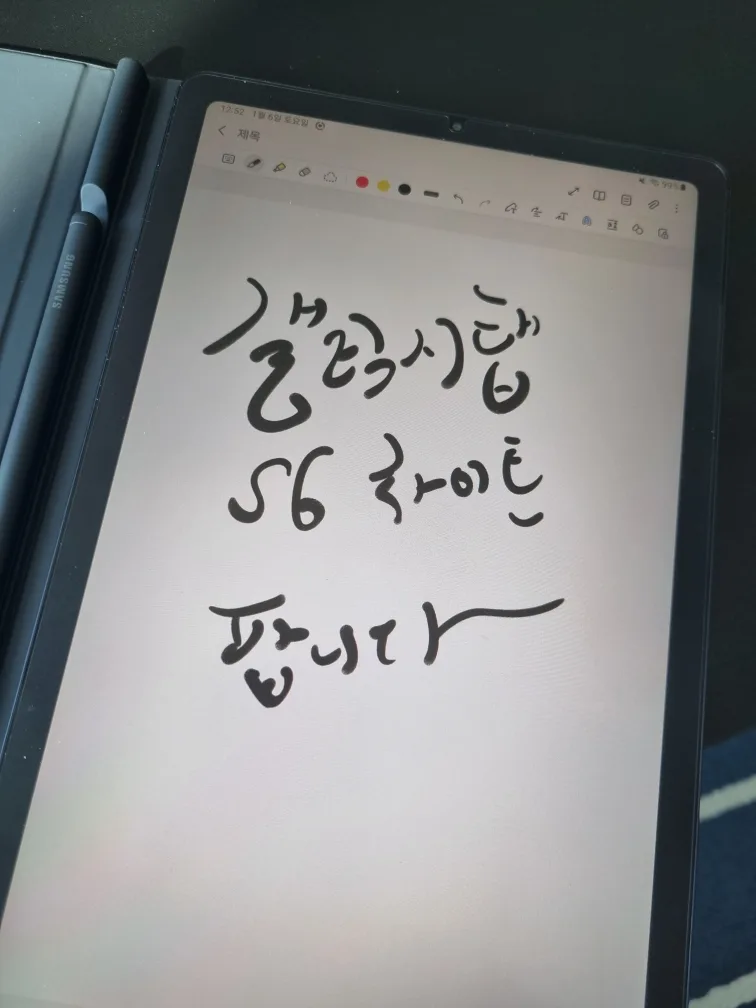 12:52 1월 6일 토요일
99%
제목
SAMSUNG
갤럭시탭
S6 라이트
팝니다